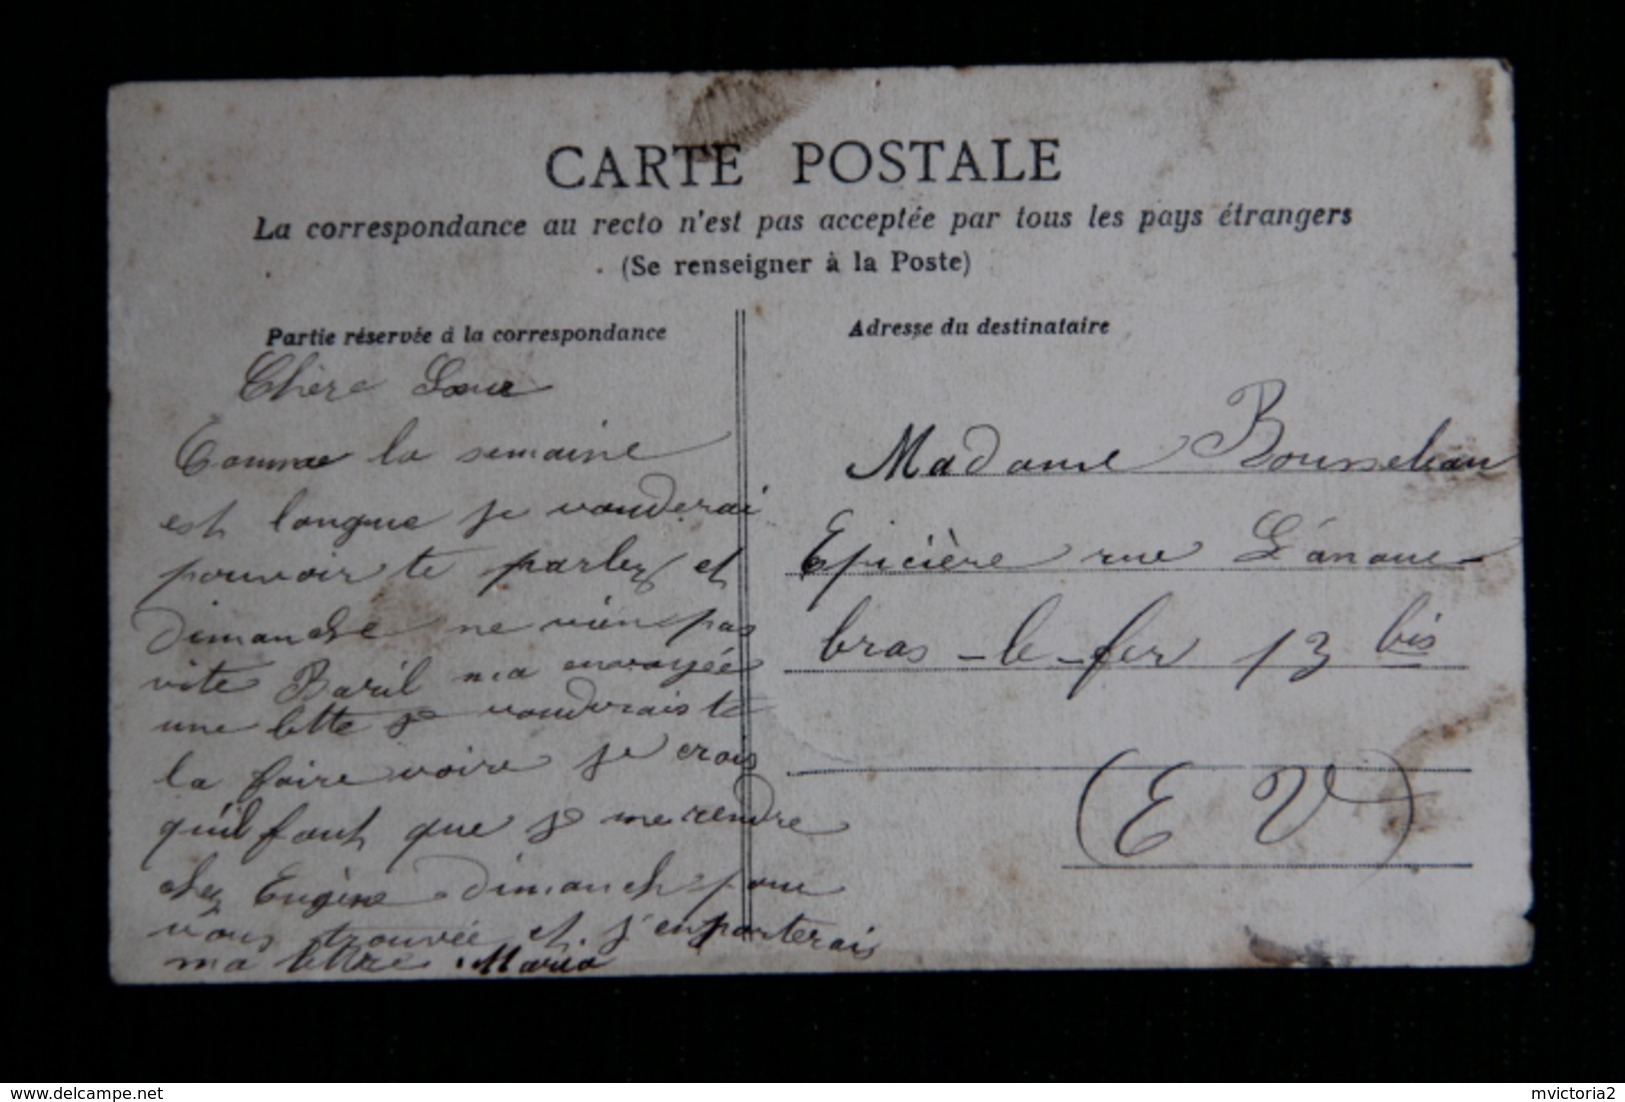 CARTE POSTALE
La correspondance au recto n'est pas acceptée par tous les pays étrangers
(Se renseigner à la Poste)
Partie réservée à la correspondance
Chère
Comme la semaine
est longue je vouderai
pouvoir te parlez et
dimanche ne vien pas
vite Baril ma envoyée
une lette je vouderais te
la faire voire je crois
qu'il faut que je me rende
chez Eugène dimanch pour
vous trouvée et j'enporterais
ma lettre. Maria
Adresse du destinataire
Madame
Epicière rue
bras-le-fer 13 bis
(E V)
delcampe.net
mvictoria2